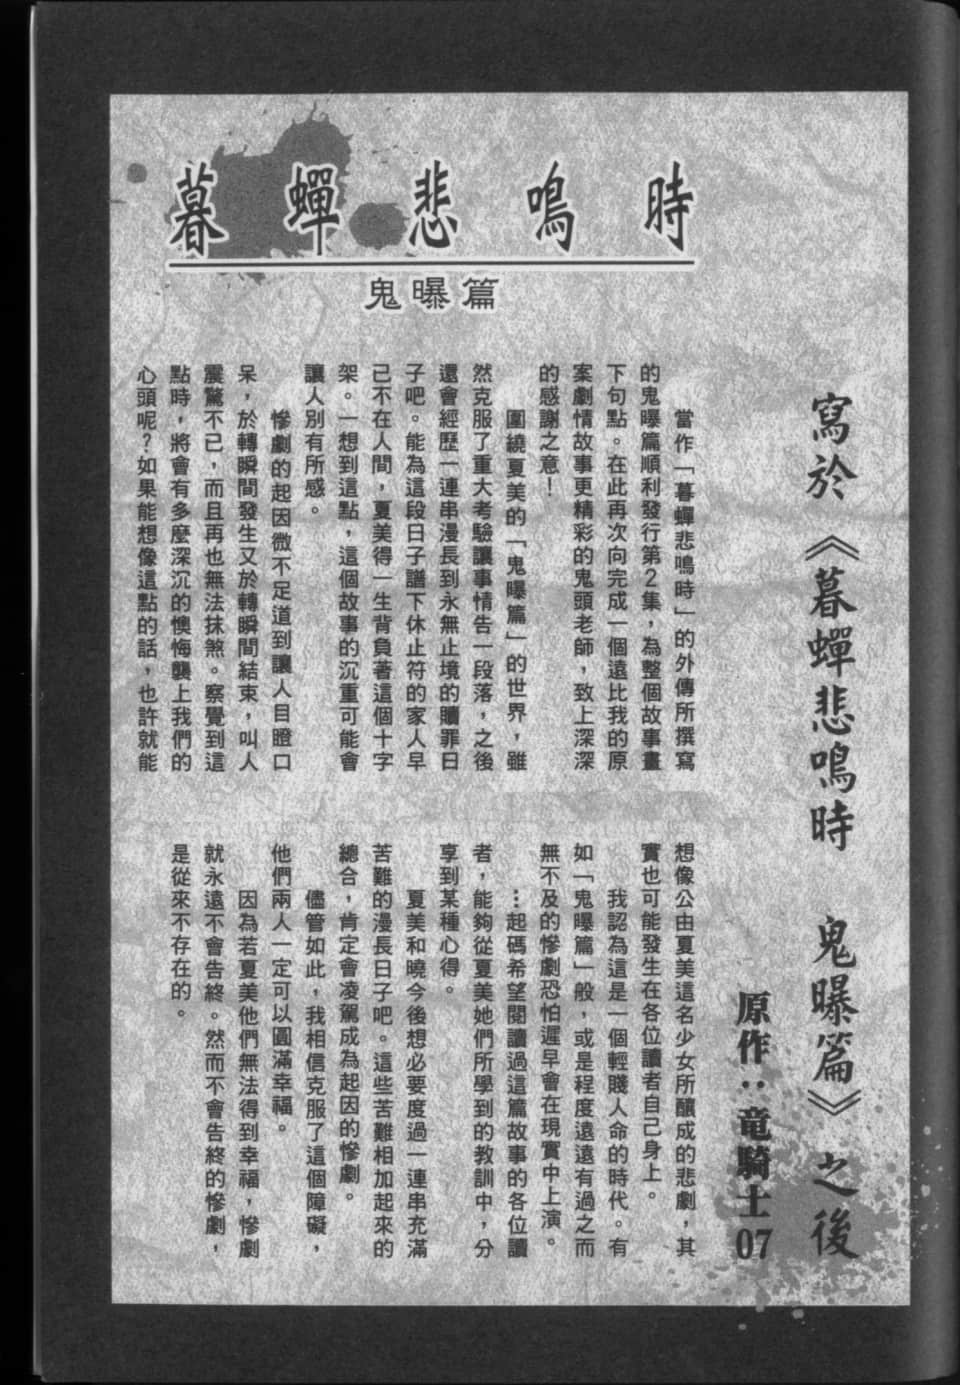 暮蟬悲鳴時
鬼曝篇
寫於《暮蟬悲鳴時 鬼曝篇》之後
原作：竜騎士07
當作「暮蟬悲鳴時」的外傳所撰寫
的鬼曝篇順利發行第2集，為整個故事畫
下句點。在此再次向完成一個遠比我的原
案劇情故事更精彩的鬼頭老師，致上深深
的感謝之意！
圍繞夏美的「鬼曝篇」的世界，雖
然克服了重大考驗讓事情告一段落，之後
還會經歷一連串漫長到永無止境的贖罪日
子吧。能為這段日子譜下休止符的家人早
已不在人間，夏美得一生背負著這個十字
架。一想到這點，這個故事的沉重可能會
讓人別有所感。
慘劇的起因微不足道到讓人目瞪口
呆，於轉瞬間發生又於轉瞬間結束，叫人
震驚不已，而且再也無法抹煞。察覺到這
點時，將會有多麼深沉的懊悔襲上我們的
心頭呢？如果能想像這點的話，也許就能
想像公由夏美這名少女所釀成的悲劇，其
實也可能發生在各位讀者自己身上。
我認為這是一個輕賤人命的時代。有
如「鬼曝篇」一般，或是程度遠遠有過之而
無不及的慘劇恐怕遲早會在現實中上演。
…起碼希望閱讀過這篇故事的各位讀
者，能夠從夏美她們所學到的教訓中，分
享到某種心得。
夏美和曉今後想必要度過一連串充滿
苦難的漫長日子吧。這些苦難相加起來的
總合，肯定會凌駕成為起因的慘劇。
儘管如此，我相信克服了這個障礙，
他們兩人一定可以圓滿幸福。
因為若夏美他們無法得到幸福，慘劇
就永遠不會告終。然而不會告終的慘劇，
是從來不存在的。